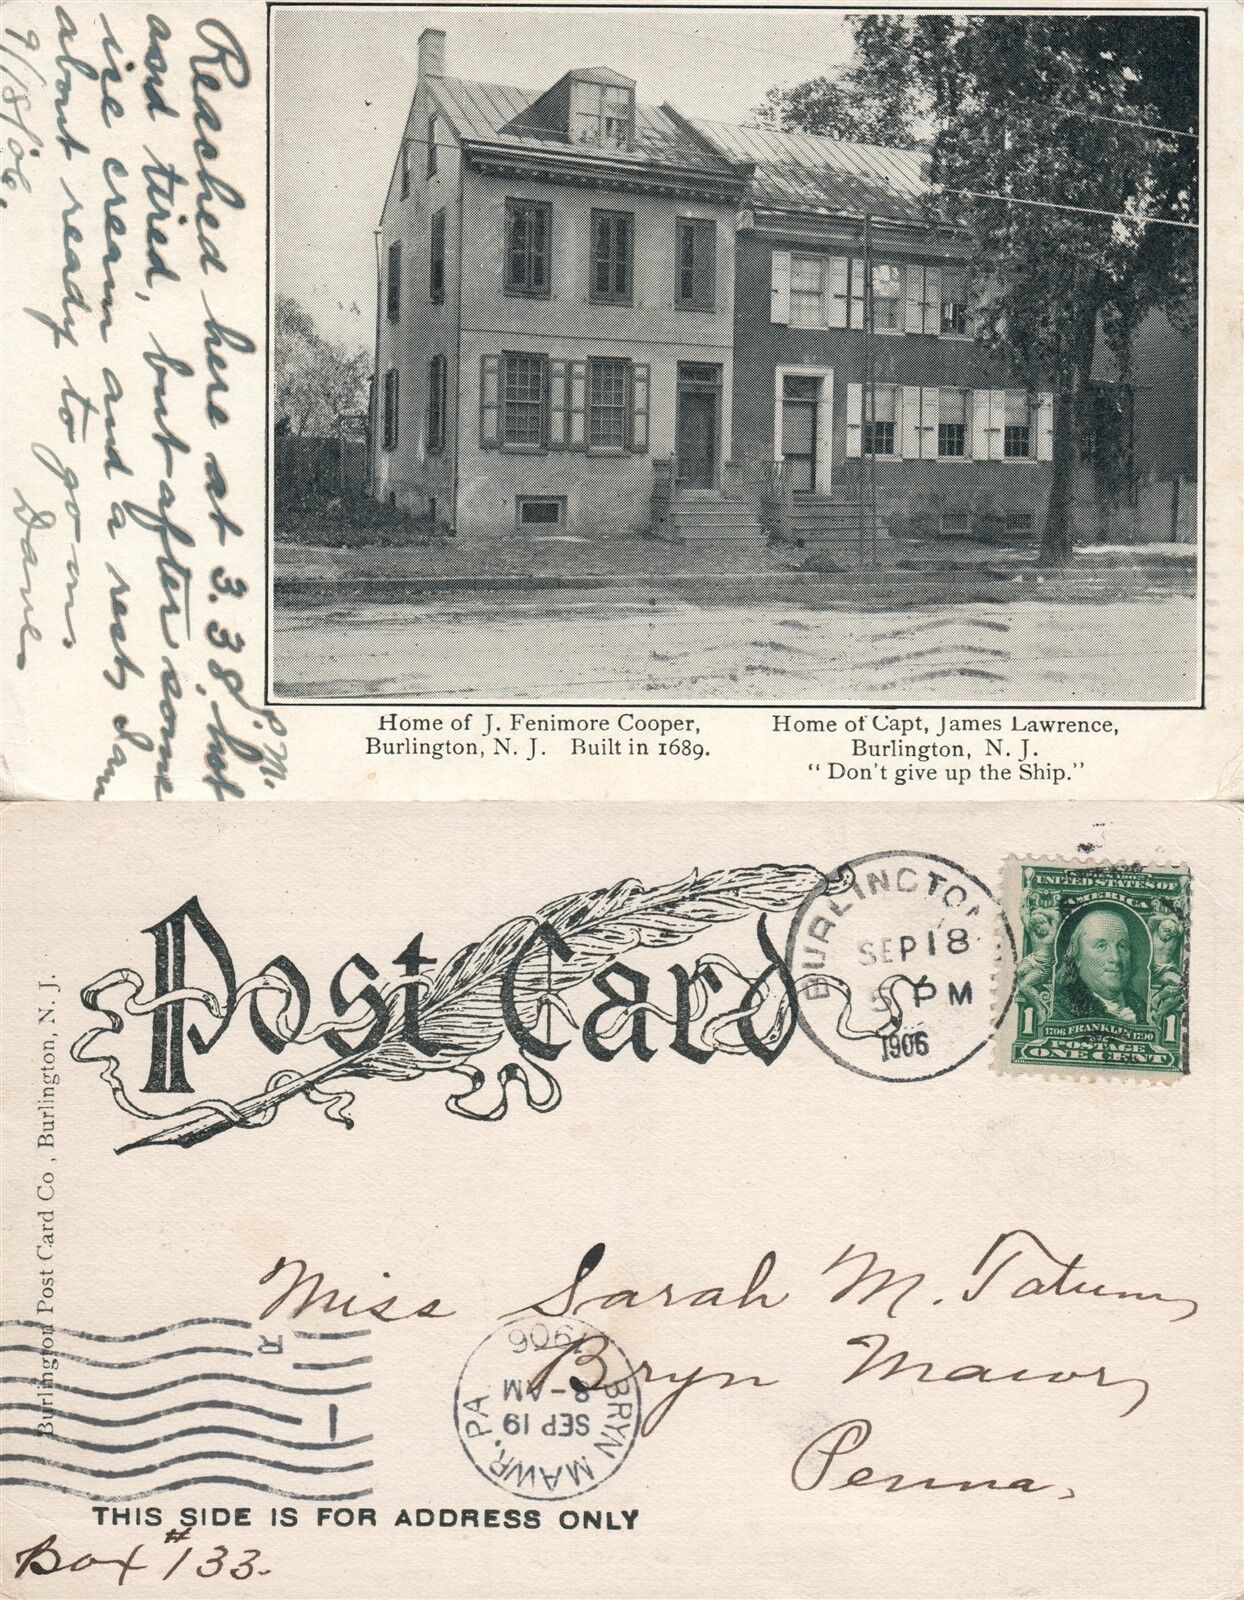 Reached here at 3.38 P.M. hot
and tired, but after some
ice cream and a rest, I am
about ready to go on.
9/18/06. Dave
Home of J. Fenimore Cooper,
Burlington, N. J. Built in 1689.
Home of Capt, James Lawrence,
Burlington, N. J.
"Don't give up the Ship."
Post Card
BURLINGTON
SEP 18
5 PM
1906
UNITED STATES OF
AMERICA
1 1706 FRANKLIN 1790 1
POSTAGE
ONE CENT
Burlington Post Card Co, Burlington, N. J.
Miss Sarah M. Tatum,
Bryn Mawr,
Penna.
BRYN MAWR, PA.
SEP 19
8-AM
1906
R
1
THIS SIDE IS FOR ADDRESS ONLY
Box #133.